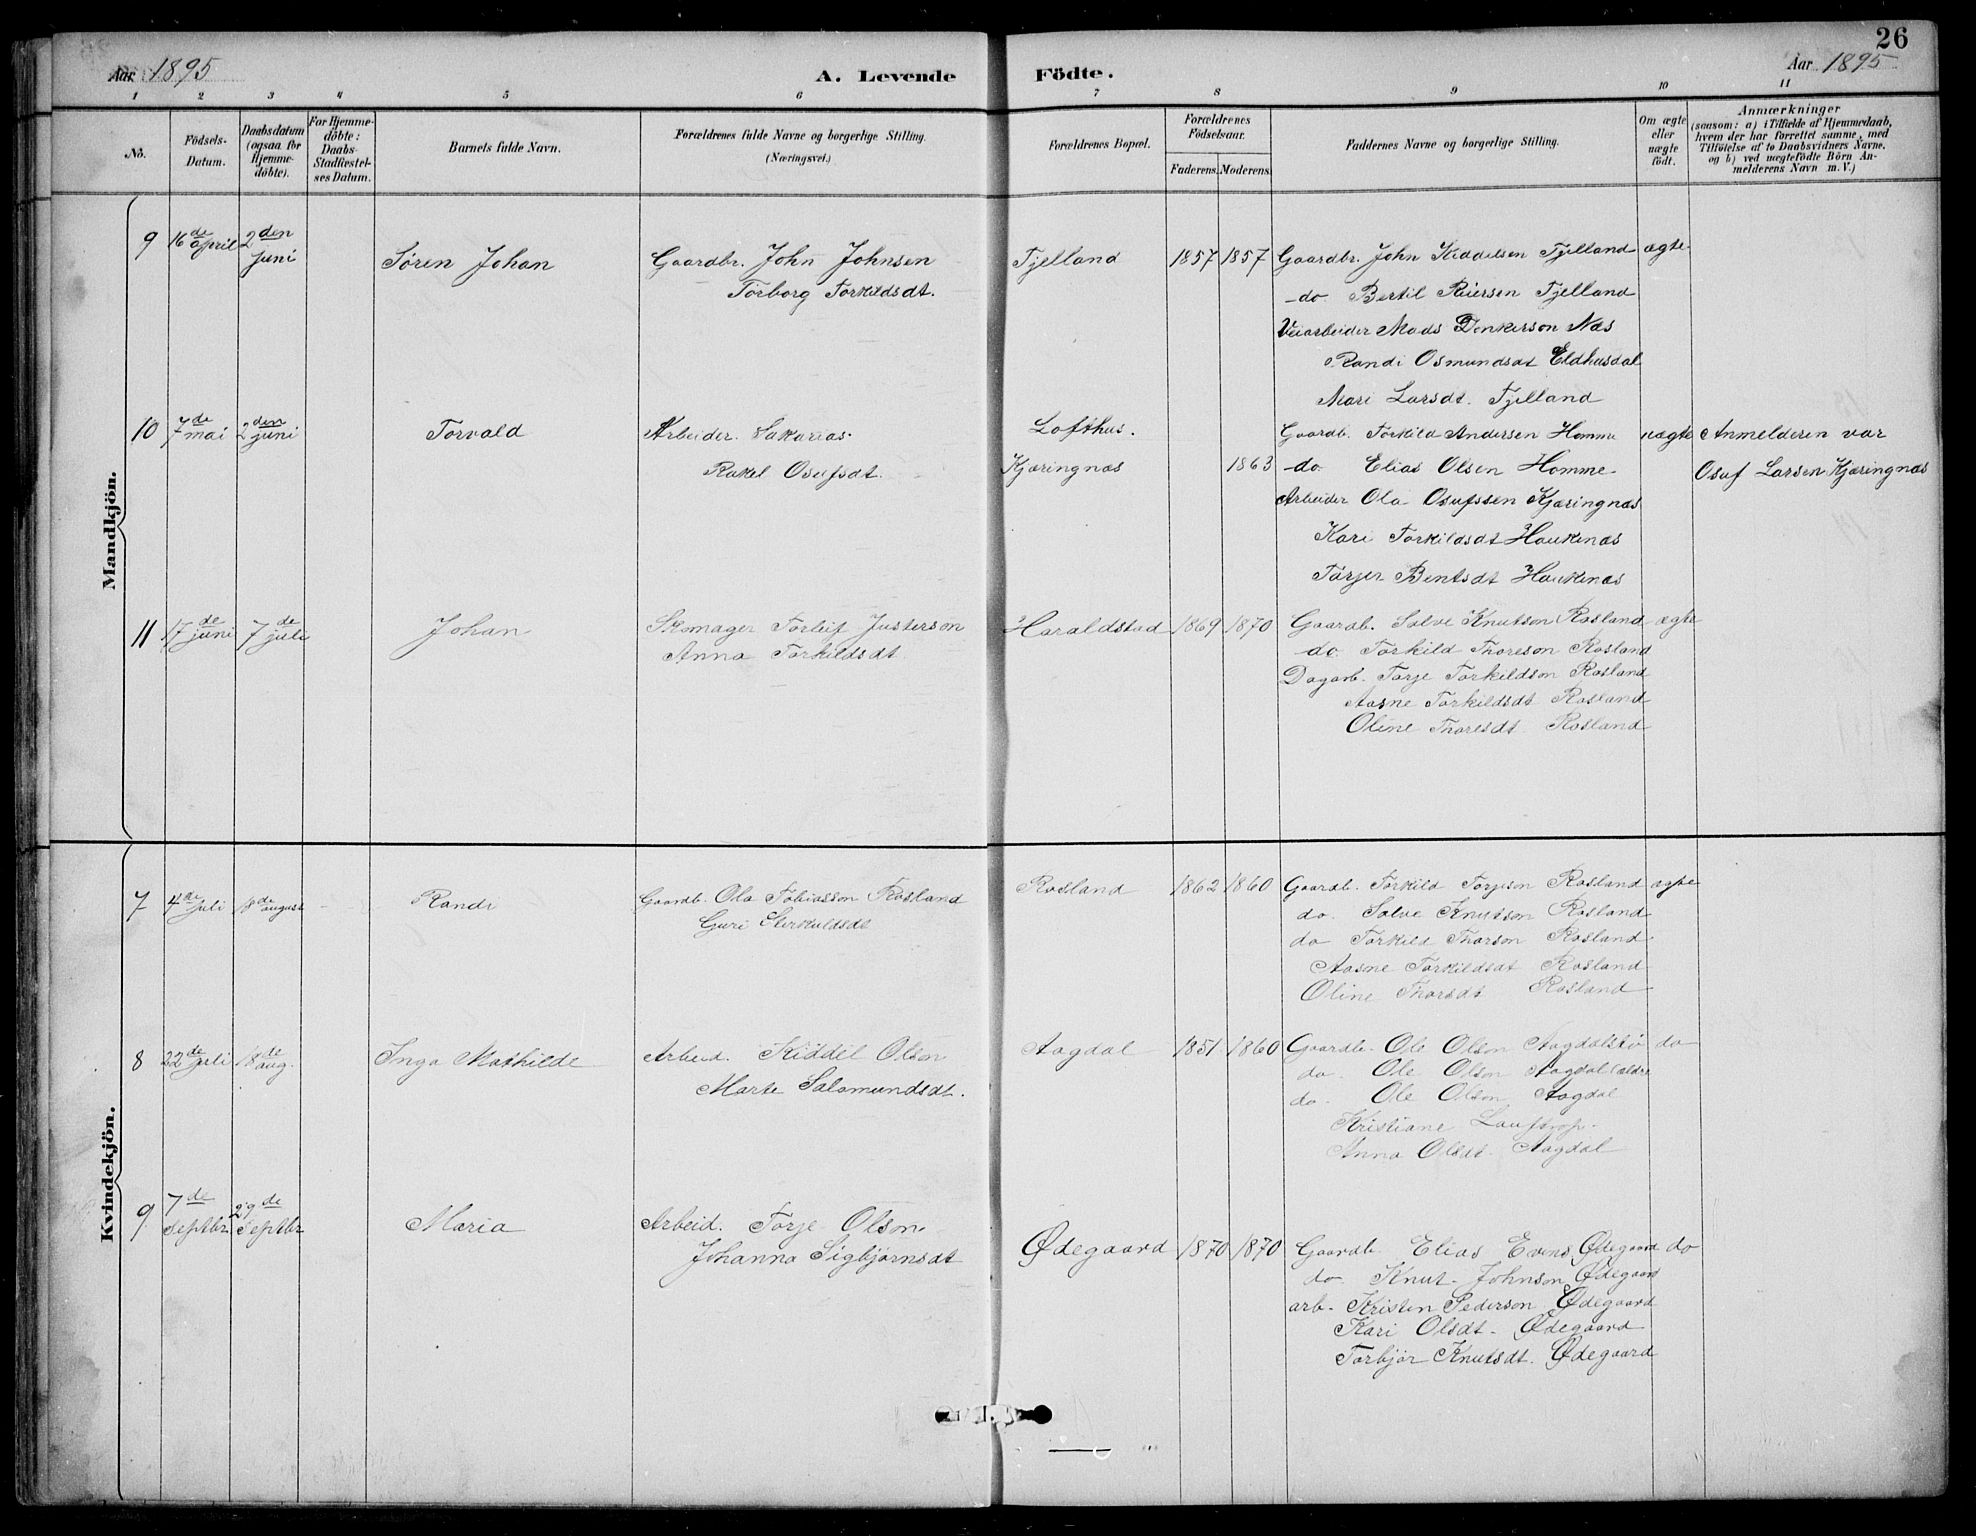 26
Aar 1895
A. Levende Födte.
Aar 1895
1 2 3 4 5 6 7 8 9 10 11
No.
Födsels-Datum.
Daabsdatum (ogsaa for Hjemme-döbte).
For Hjemme-döbte: Daabs-Stadfæstel-ses Datum.
Barnets fulde Navn.
Forældrenes fulde Navne og borgerlige Stilling. (Næringsvei.)
Forældrenes Bopæl.
Forældrenes Födselsaar.
Faderens. Moderens.
Faddernes Navne og borgerlige Stilling.
Om ægte eller uægte födt.
Anmærkninger
(saasom: a) i Tilfælde af Hjemmedaab,
hvem der har forrettet samme, med
Tilföielse af to Daabsvidners Navne.
og b) ved uægtefödte Börn An-
melderens Navn m. V.)
Mandkjön.
9 16de april 2den juni Søren Johan Gaardbr. John Johnsen Fjelland 1857 1857 Gaardbr. John Kiddelsen Fjelland ægte
Torborg Torkildsdt. do Bertil Reiersen Fjelland
Veiarbeider Mads Denkerson Næs
Randi Osmundsdt Eldhusdal
Mari Larsdt. Fjelland
10 7de mai 2den juni Torvald Arbeider. Sakarias Lofthus. Gaardb. Torkild Andersen Homme uægte Anmelderen var
Rakel Osufsdt. Kjæringnæs 1863 do Elias Olsen Homme Osuf Larsen Kjæringnæs
Arbeider Ola Osufssen Kjæringnæs
Kari Torkildsdt Haukenæs
Torjer Bentsdt Haukenæs
11 17de juni 7de juli Johan Skomager Torleif Justersen Haraldstad 1869 1870 Gaardb. Salve Knutson Røsland ægte
Anna Torkildsdt. do. Torkild Thoreson Røsland
Dagarb. Torje Torkildson Røsland
Aasne Torkildsdt Røsland
Oline Thoresdt Røsland
Kvindekjön.
7 4de juli 18de august Randi Gaardb. Ola Tobiasson Røsland Røsland 1862 1860 Gaardb. Torkild Torjeson Røsland ægte
Guri Sterkuldsdt do. Salve Knutson Røsland
do Torkild Thorson Røsland
Aasne Torkildsdt Røsland
Oline Thorsdt Røsland
8 22de juli 18de aug. Inga Mathilde Arbeid. Kiddel Olson Aagdal 1851 1860 Gaardb. Ole Olson Aagdalstø do
Marte Salamundsdt. do. Ole Olson Aagdal ældre
do. Ole Olson Aagdal
Kristiane
Anna Olsdt. Aagdal
9 7de Septbr. 29de Septbr Maria Arbeid. Torje Olson Ødegaard 1870 1870 Gaardb. Elias Evens. Ødegaard do
Johanna Sigbjørnsdt do. Knut Johnson Ødegaard
arb. Kristen Pederson Ødegaard
Kari Olsdt. Ødegaard
Torbjør Knutsdt. Ødegaard